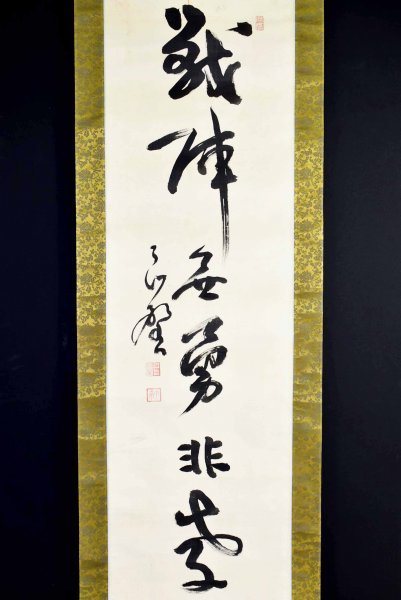 戦陣無勇非孝